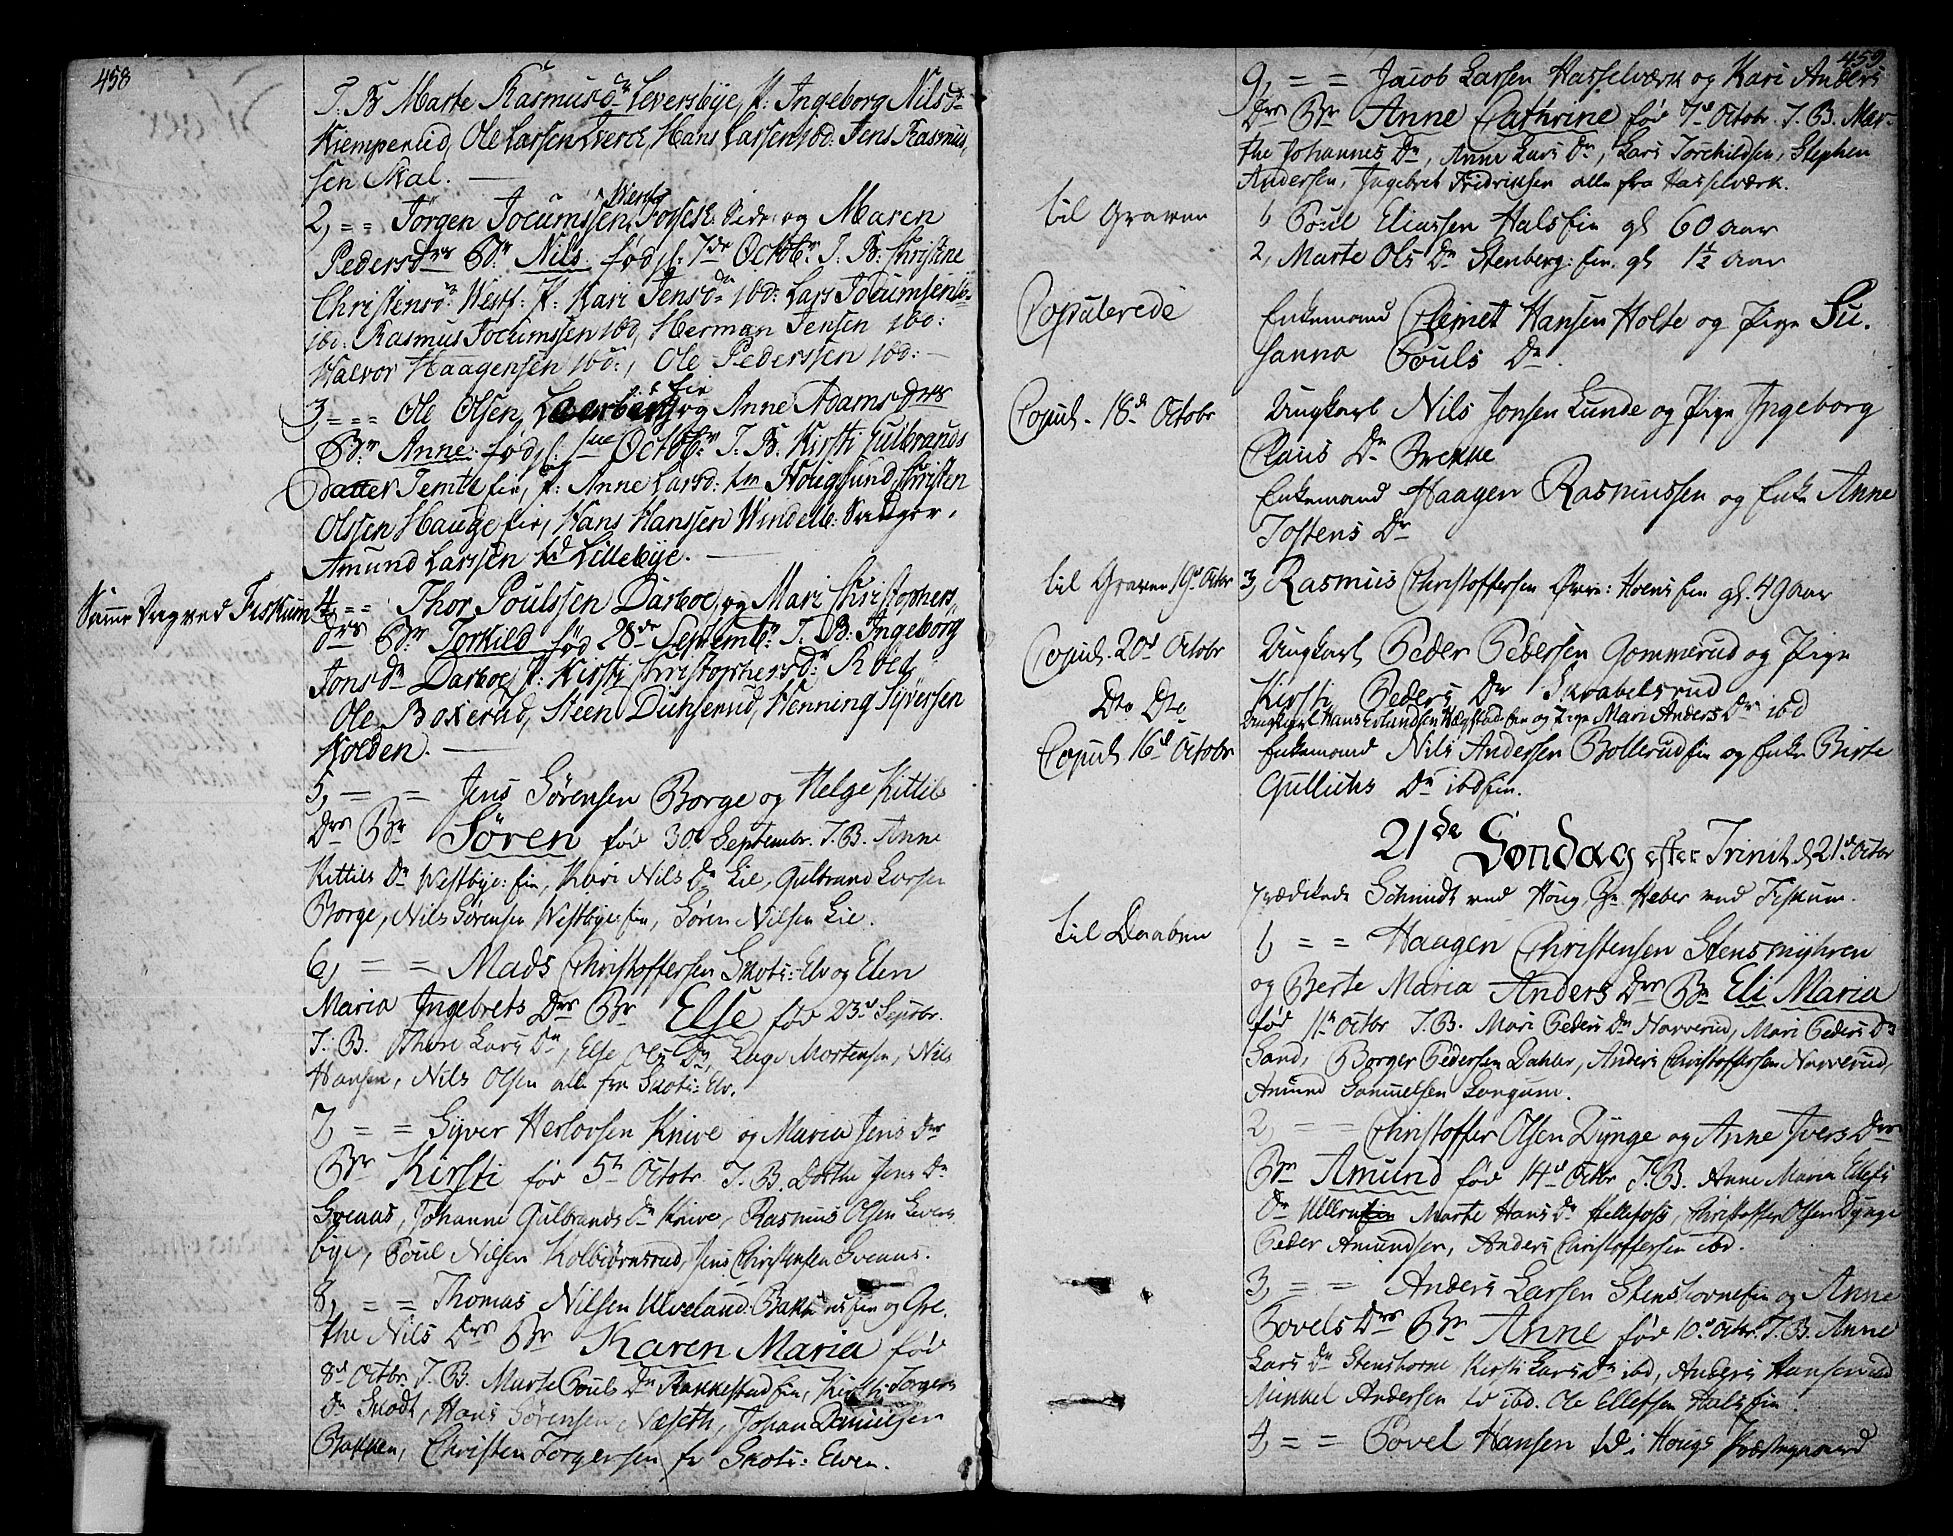 458
T. B Marte Rasmusdr Leversbye, P: Ingeborg Nilsdr
Kiemperud, Ole Larssen Lerch, Hans Larssen ibd: Jens Rasmus,
sen Skal.
2, = = Jörgen Jocumssen Fossesh: Side: og Maren
Pedersdrs Br Nils. föd d: 7de Octobr T. B: Christine
Christensdr Westf: P: Kari Jensdr ibd: Lars Jocumsen
ibd: Rasmus Jocumssen ibd, Herman Jensen ibd:
Halvor Haagensen ibd:, Ole Pederssen ibd:
3, = = Ole Olsen, og Anne Adams drs
Br Anne. föd d: Octobr T. B. Kirsti Gulbrands
datter Temte fie, P: Anne Larsd: Hougsund, Christen
Olssen Hauge fie, Hans Hanssen Windelb: Sadger,
Amund Larssen td Lillebye.
Samme Dag ved Fiskum
4, = = Thor Poulssen Darboe, og Mari Christophers
drs Br Torkild föd 28de Septembr T. B: Ingeborg
Jonsdr Darboe, P: Kirsti Christophersdr: Röed
Ole Boxerud, Steen Duhserud, Henning Syverssen
Kolden.
5, = = Jens Sörensen Borge og Helge Kittils
Drs Br Sören föd 30 Septembr. T. B. Anne
Kittils Dr Westbye: fie, Kari Nils Dr Lie, Gulbrand Larsen
Borge, Nils Sörensen Westbye fie, Sören Nilsen Lie.
6, = = Mads Christoffersen Skots: Elv og Elen
Maria Ingebrets Drs Br Else föd 23d Septbr.
T. B. Thore Lars Dr, Else Ols Dr, Lage Mortensen, Nils
Hansen, Nils Olsen alle fra Skots: Elv.
7, = = Syver Herlovsen Knive og Maria Jens Drs
Br Kirsti föd 5te Octobr T. B. Dorthe Jens Dr
Sveaas, Johanne Gulbrands Dr Knive, Rasmus Olsen Levers
bye, Poul Nilsen Kolbiörnsrud, Jens Christensen Sveaas.
8, = = Thomas Nilsen Ulveland: Bakk: eie fie og Gre,
the Nils Drs Br Karen Maria föd
8d Octbr. T. B. Marte Pouls Dr Rakkestad fie, Kirsti Jorgens
Dr Skodt, Hans Sörensen Næseth, Johan Danielsen
Bakken, Christen Torgersen fr Skots: Elven.
459
9, = = Jacob Larsen Hasselværk og Kari Anders
Drs Br Anne Cathrine föd 7d Octobr. T. B. Mar-
the Johannes Dr, Anne Lars Dr, Lars Torchildsen, Stephen
Andersen, Ingebret Fridriksen alle fra Hasselværk.
til Graven
1 Poul Eliassen Hals fie gl 60 aar
2, Marte Ols Dr Stenberg: fie. gl 1½ aar
Copulerede
Enkemand Clemet Hansen Holte og Pige Su.
sanna Pouls Dr.
Copul. 18d Octobr
Ungkarl Nils Jonsen Lunde og Pige Ingeborg
Claus Dr Brekke
Enkemand Haagen Rasmussen og Enke Anne
Tostens Dr
til Graven 19d Octbr
3, Rasmus Christoffersen Övre: Hoens fie gl. 49 aar
Copul. 20d Octobr
Ungkarl Peder Pedersen Gommerud og Pige
Kirsti Peders Dr Skrabelsrud
Dto Dto
Ungkarl Hans Erlandsen Hægstad fie og Pige Mari Anders Dr ibd
Copul. 16d Octobr
Enkemand Nils Andersen Bollerud fie og Enke Birte
Gullichs Dr ibd fie.
21de Söndag efter Trinit. d 21d Octbr
Prædikede Schmidt ved Houg, Hr. Heber ved Fiskum.
til Daaben
1, = = Haagen Christensen Stensmyhren
og Berte Maria Anders Drs Br Eli Maria
föd 11te Octbr T. B. Mari Peders Dr Narverud, Mari Peders Dr
Sand, Borger Pedersen Dahler, Anders Christoffersen Narverud,
Amund Samuelsen Longum.
2, = = Christoffer Olsen Dynge og Anne Ivers Drs
Br Amund föd 14d Octbr T. B. Anne Maria Ellefs
Dr Ullern Marte Hans Dr Hellefoss, Christoffer Olsen Dynge
Peder Amundsen, Anders Christoffersen ibd.
3, = = Anders Larsen Stenshorne fie og Anne
Povels Drs Br Anne föd 10d Octbr. T. B. Anne
Lars Dr Stenshorne Kirsti Lars Dr ibd, Anders Hansen ibd
Mikkel Andersen td ibd. Ole Ellefsen Hals fie.
4, = = Povel Hansen td i Hougs Præstegaard